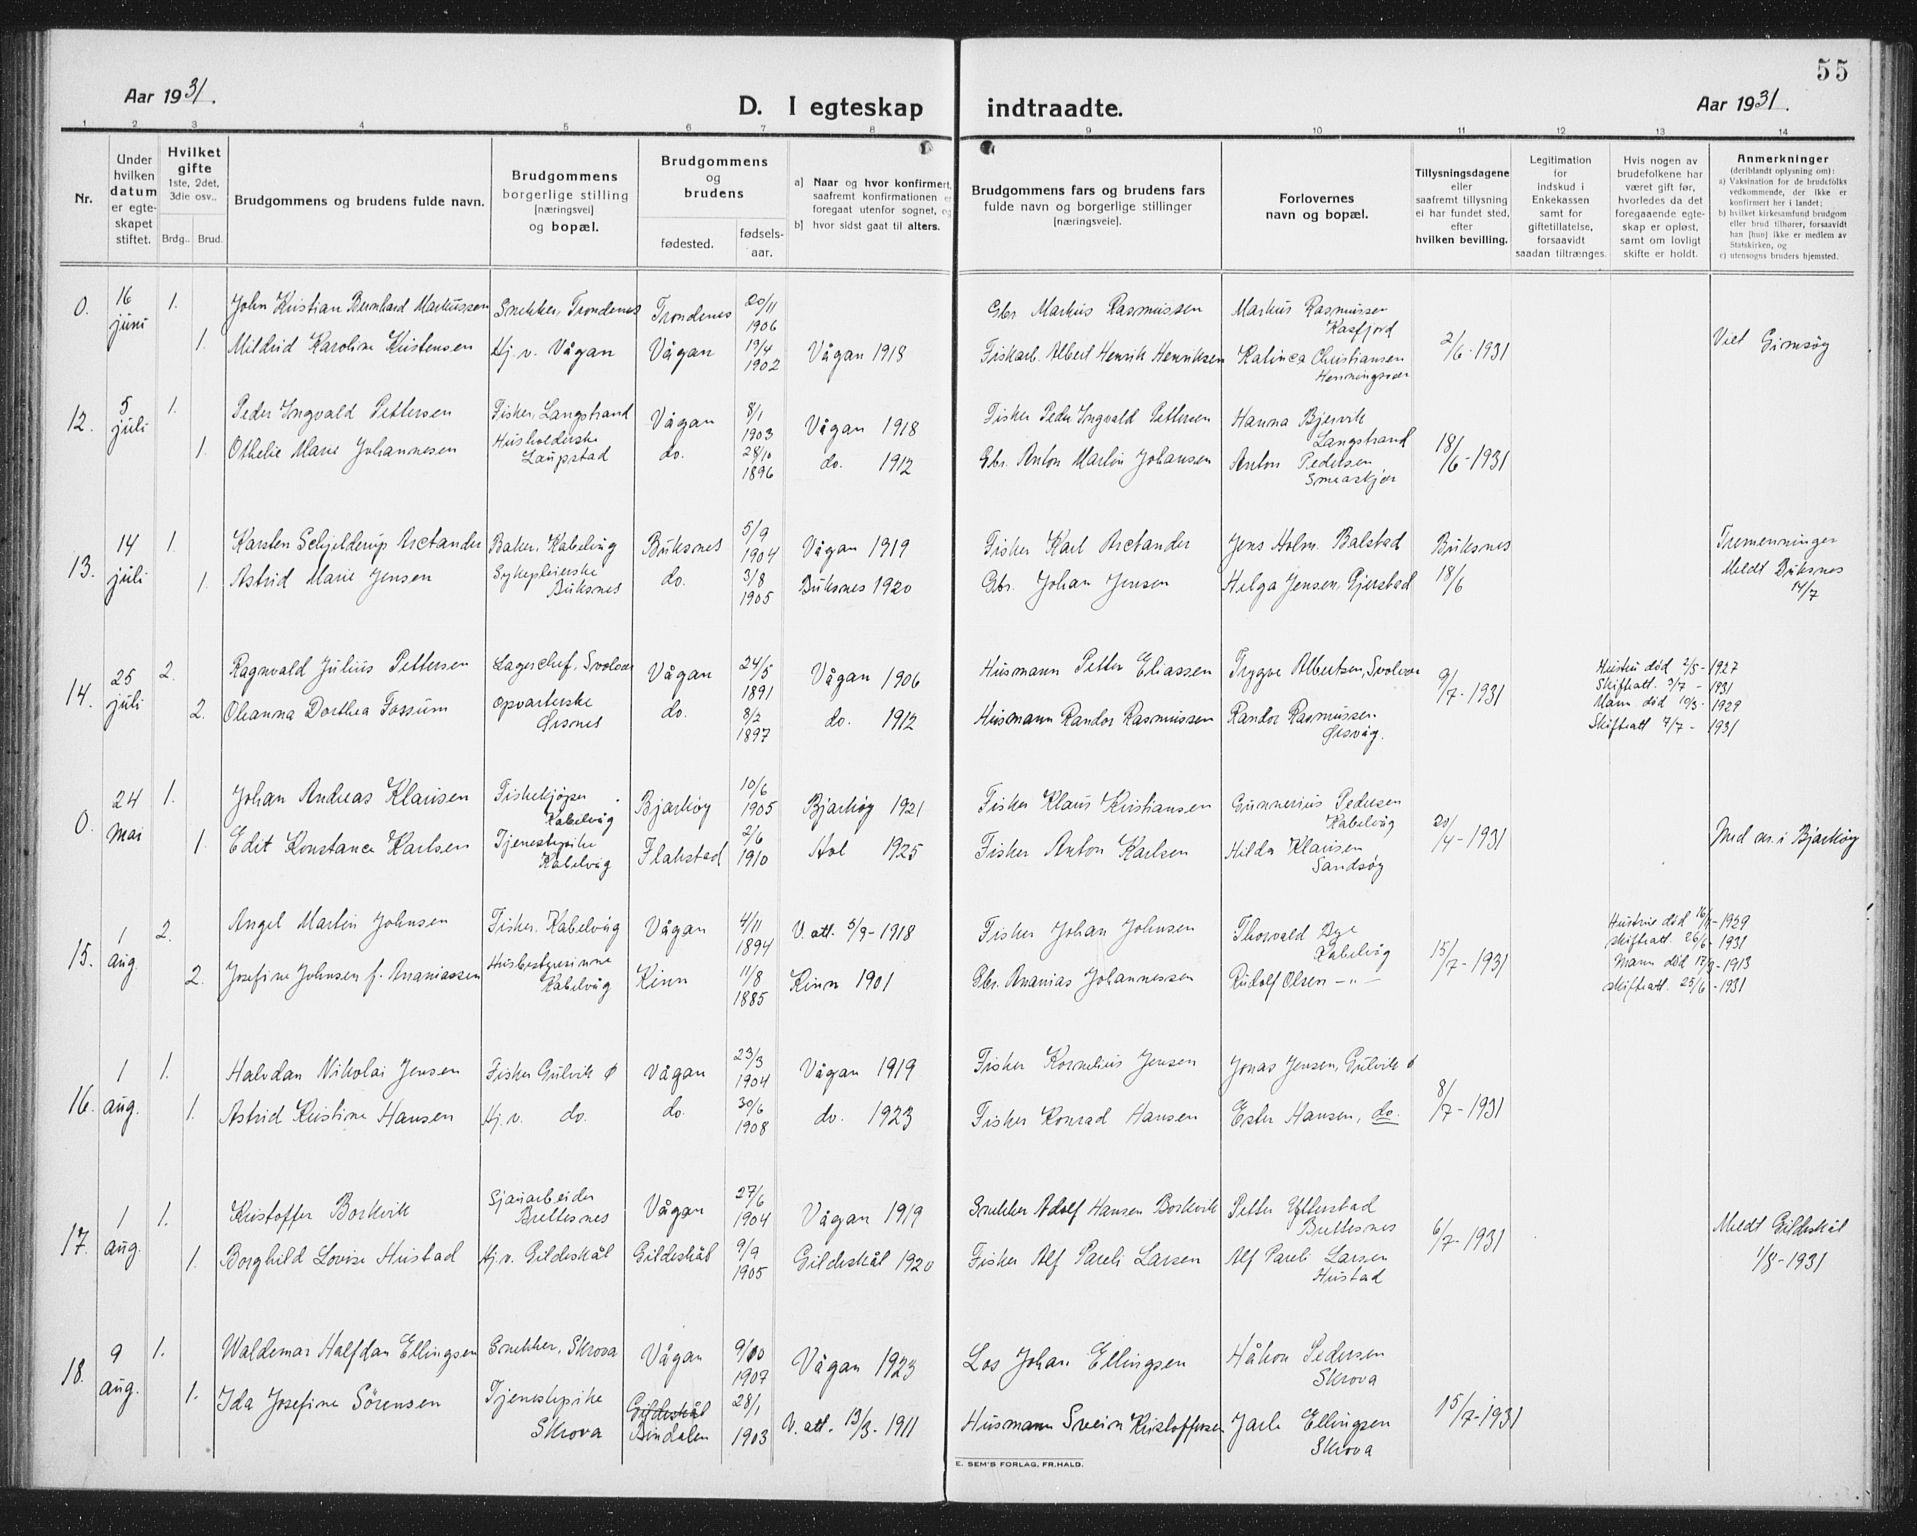 55
Aar 1931.
D. I egteskap indtraadte.
Aar 1931.
1 2 3 4 5 6 7 8 9 10 11 12 13 14
Nr.
Under hvilken datum er egteskapet stiftet.
Hvilket gifte 1ste, 2det, 3die osv.. Brdg.. Brud.
Brudgommens og brudens fulde navn.
Brudgommens borgerlige stilling [næringsvei] og bopæl.
Brudgommens og brudens
fødested. fødsels-aar.
a) Naar og hvor konfirmert, saafremt konfirmationen er foregaat utenfor sognet, og
b) hvor sidst gaat til alters.
Brudgommens fars og brudens fars fulde navn og borgerlige stillinger [næringsveie].
Forlovernes navn og bopæl.
Tillysningsdagene eller saafremt tillysning ei har fundet sted, efter hvilken bevilling.
Legitimation for indskud i Enkekassen samt for giftetillatelse, forsaavidt saadan tiltrænges.
Hvis nogen av brudefolkene har været gift før, hvorledes da det foregaaende egteskap er opløst, samt om lovligt skifte er holdt.
Anmerkninger (deriblandt oplysning om):
a) Vaksination for de brudefolks vedkommende, der ikke er konfirmert her i landet;
b) hvilket kirkesamfund brudgom eller brud tilhører, forsaavidt han [hun] ikke er medlem av Statskirken, og
c) utensogns bruders hjemsted.
0. 16 juni 1. John Kristian Bernhard Markussen Snekker, Trondenes Trondenes 20/11 1906 Gbr Markus Rasmussen Markus Rasmussen Kasfjord
1. Mildrid Karoline Kristensen Hj. v. Vågan Vågan 19/4 1902 Vågan 1918 Fiskarb. Albert Henrik Henriksen Katinca Christiansen Henningsvær 2/6-1931 Viet Gimsøy
12. 5 juli 1. Peder Ingvald Pettersen Fisker, Langstrand Vågan 8/1 1903 Vågan 1918 Fisker Peder Ingvald Pettersen Hanna Bjervik Langstrand
1. Othelie Marie Johannesen Husholderske Laupstad do. 28/10 1896 do. 1912 Gbr. Anton Martin Johansen Anton Pedersen 18/6-1931
13. 14 juli 1. Karsten Schjelderup Arctander Baker, Kabelvåg Buksnes 5/9 1904 Vågan 1919 Fisker Karl Arctander Jens Holm, Balstad Buksnes Tremenninger
1. Astrid Marie Jensen Sykepleierske Buksnes do. 3/8 1905 Buksnes 1920 Gbr. Johan Jensen Helga Jensen, Gjerstad 18/6 Meldt Buksnes 14/7
14. 25 juli 2. Ragnvald Julius Pettersen Lagerchef, Svolvær Vågan 24/5 1891 Vågan 1906 Husmann Petter Eliassen Trygve Albertsen, Svolvær 9/7-1931 Hustru død 2/5-1927 Skifteatt. 3/7-1931
2. Ohanna Dorthea Fossum Opvarterske Ørsnes do. 8/2 1897 do. 1912 Husmann Randor Rasmussen Randor Rasmussen Ørsvåg. Mann død 10/3-1929 Skifteatt 7/7-1931
0. 24 mai 1. Johan Andreas Klausen Fiskekjøper Kabelvåg Bjarkøy 10/6 1905 Bjarkøy 1921 Fisker Klaus Kristiansen Gunnerius Pedersen Kabelvåg
1. Edit Konstance Karlsen Tjenestepike Kabelvåg Flakstad 2/6 1910 Hol 1925 Fisker Anton Karlsen Hilda Klausen Sandsøy 20/4-1931 Med an. i Bjarkøy
15. 1 aug. 2. Angel Martin Johnsen Fisker, Kabelvåg Vågan 4/11 1894 V. att. 5/9-1918 Fisker Johan Johnsen Thorvald Bye Kabelvåg 15/7-1931 Hustru død 16/9-1929 skifteatt. 26/6-1931
2. Josefine Johnsen f. Ananiassen Husbestyrerinne Kabelvåg Kinn 11/8 1885 Kinn 1901 Gbr. Ananias Johannessen Rudolf Olsen -"- Mann død 17/9-1913 skifteatt. 23/6-1931
16. 1 aug. 1. Halvdan Nikolai Jensen Fisker Gulvik ø Vågan 23/3 1904 Vågan 1919 Fisker Kornelius Jensen Jonas Jensen, Gulvik ø
1. Astrid Kristine Hansen Hj. v. do. do. 30/6 1908 do. 1923 Fisker Konrad Hansen Ester Hansen, do. 8/7-1931
17. 1 aug. 1. Kristoffer Borkvik Sjauarbeider Brettesnes Vågan 27/6 1904 Vågan 1919 Snekker Adolf Hansen Borkvik Petter Ytterstad Brettesnes 6/7-1931 Meldt Gildeskål 1/8-1931
1. Borghild Lovise Hustad Hj. v. Gildeskål Gildeskål 9/9 1905 Gildeskål 1920 Fisker Alf Pareli Larsen Alf Pareli Larsen Hustad
18. 9 aug. 1. Waldemar Halfdan Ellingsen Snekker, Skrova Vågan 9/10 1907 Vågan 1923 Los Johan Ellingsen Håkon Pedersen Skrova
1. Ida Josefine Sörensen Tjenestepike Skrova Gildeskål Bindalen 28/1 1903 V. att. 13/3-1911 Husmann Svein Kristoffersen Jarle Ellingsen Skrova 15/7-1931
E. SEM'S FORLAG, FR.HALD.